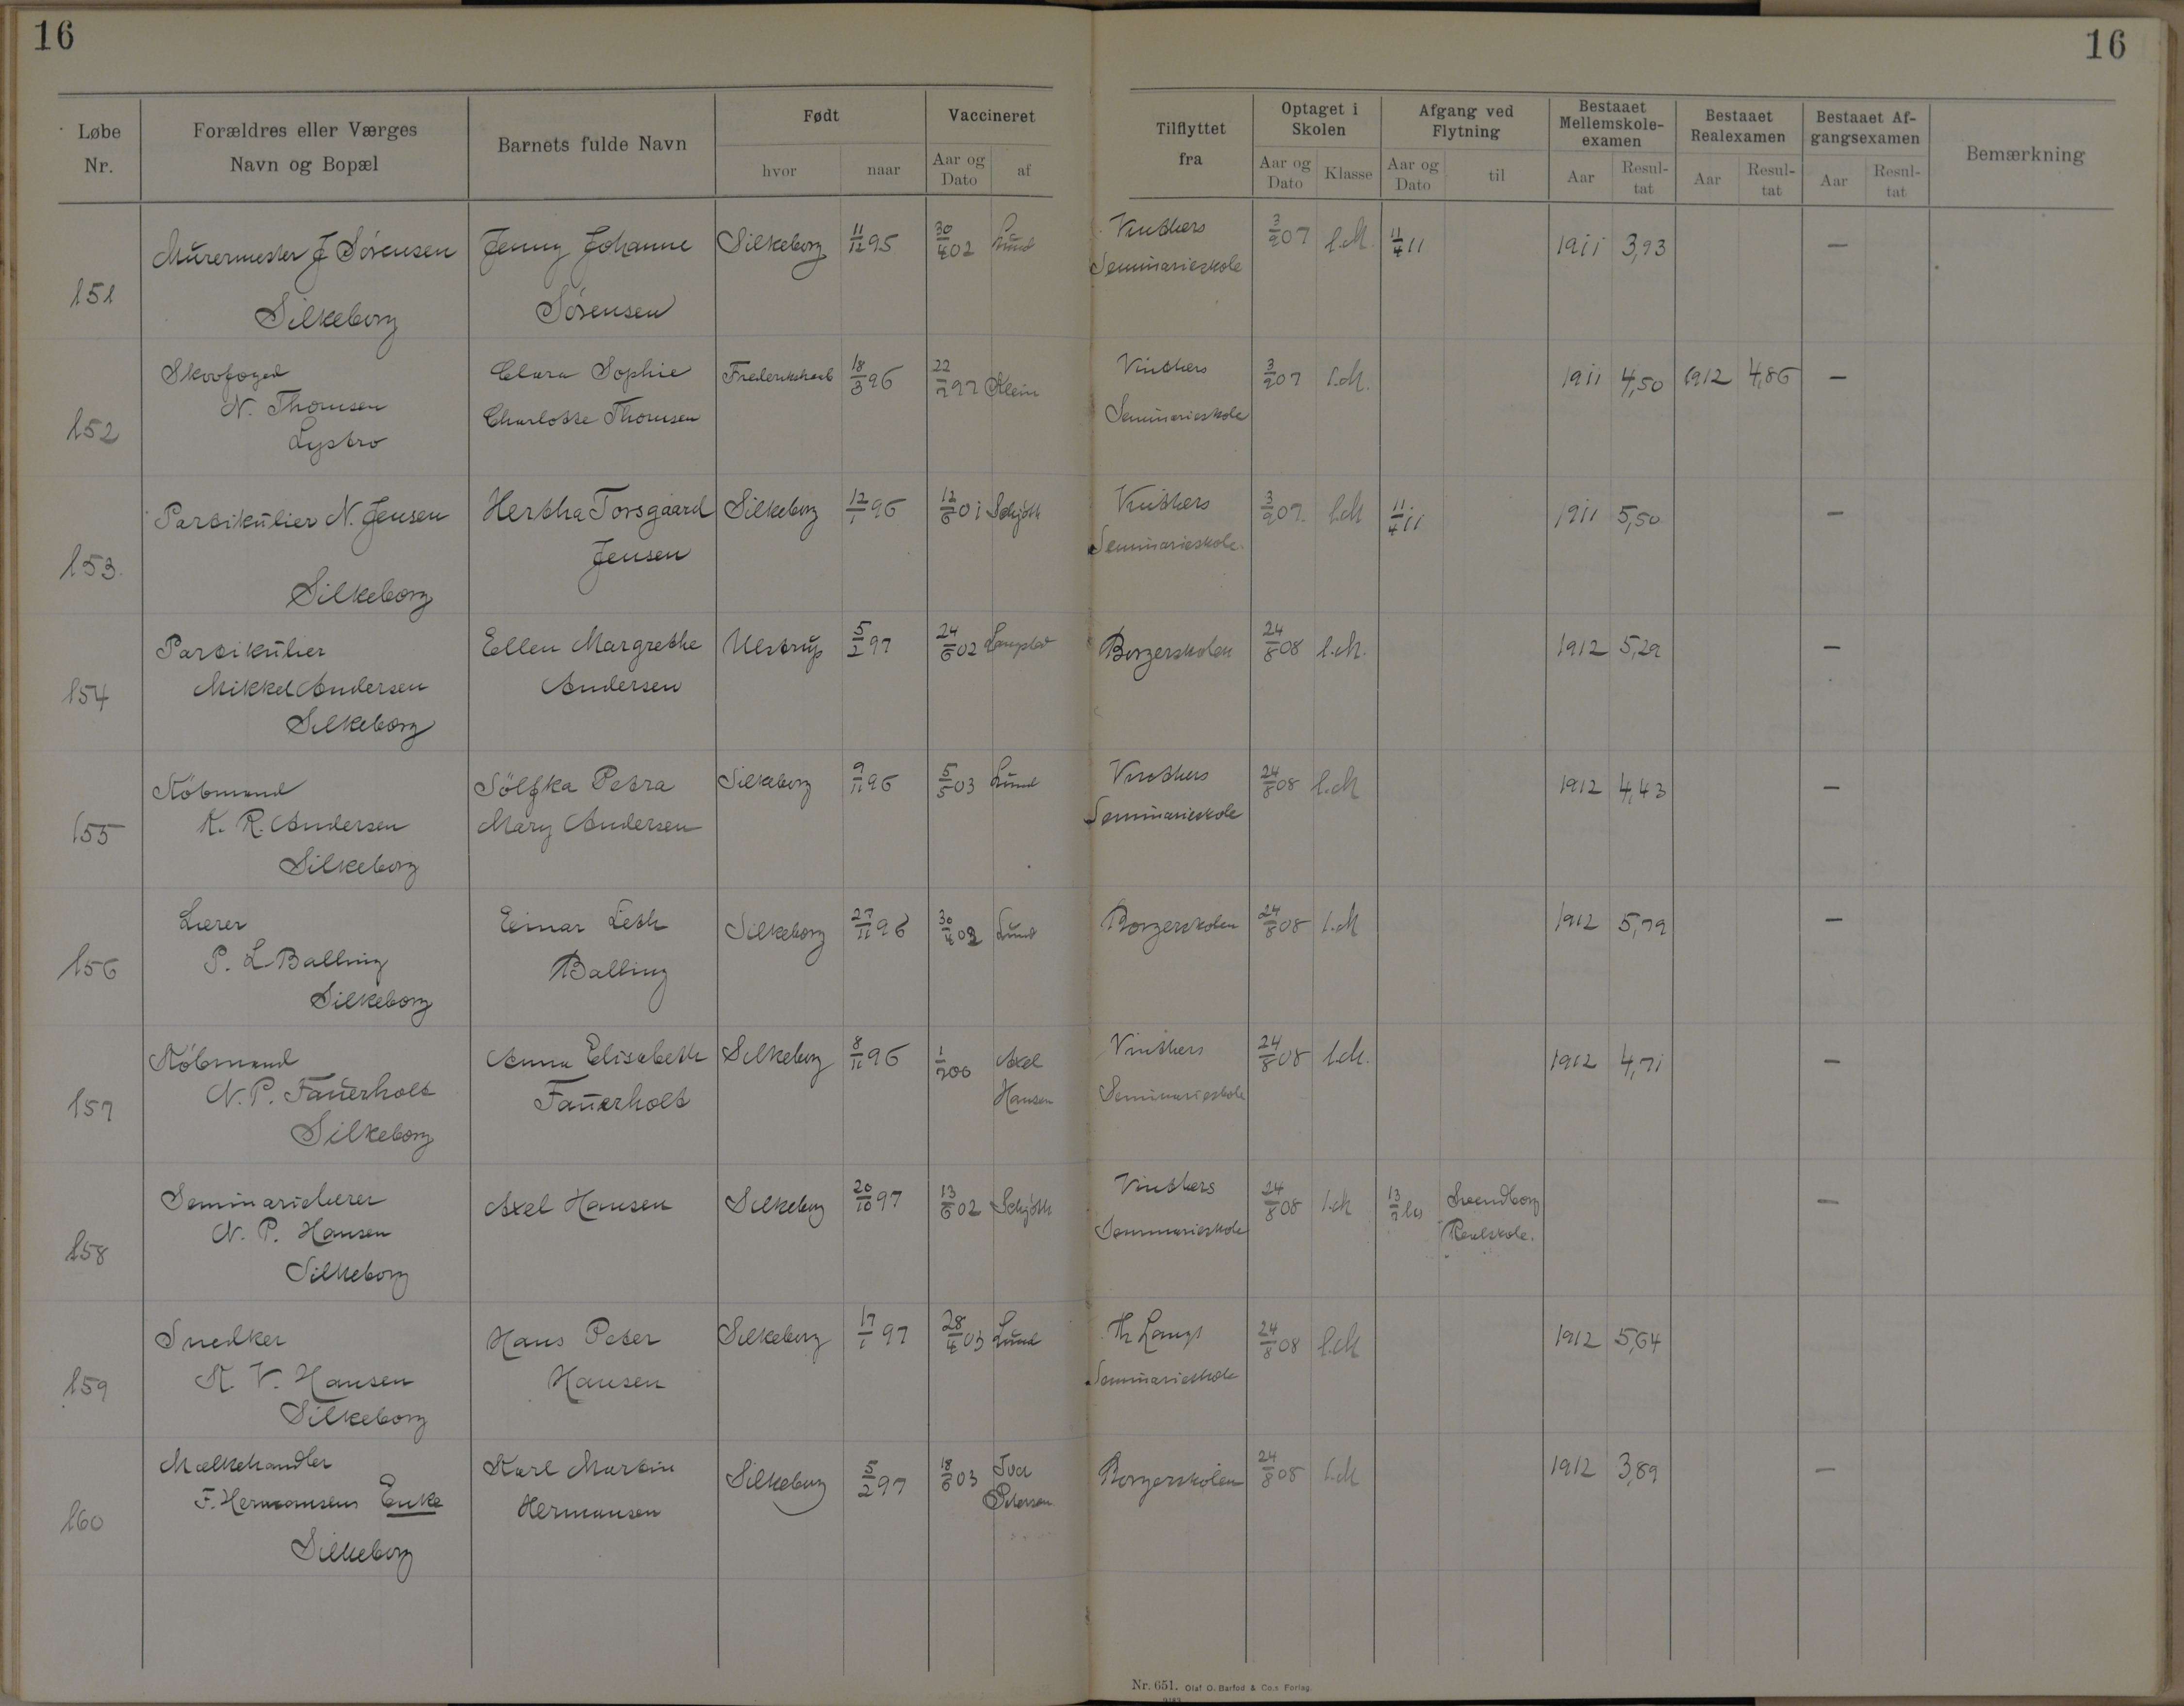 16
16
Løbe Nr.
Forældres eller Værges Navn og Bopæl
Barnets fulde Navn
Født
hvor
naar
Vaccineret
Aar og Dato
af
Tilflyttet fra
Optaget i Skolen
Aar og Dato
Klasse
Afgang ved Flytning
Aar og Dato
til
Bestaaet Mellemskole-examen
Aar
Resul-tat
Bestaaet Realexamen
Aar
Resul-tat
Bestaaet Af-gangsexamen
Aar
Resul-tat
Bemærkning
151 Murermester J Sörensen Jenny Johanne Silkeborg 11/12 95 30/4 02 Lund Vinthers 3/9 07 1.M. 11/4 11 1911 3,93 —
Silkeborg Sörensen Seminarieskole
152 Skovfoged Clara Sophie 18/3 96 22/7 97 Klein Vinthers 3/9 07 1.M. 1911 4,50 1912 4,86 —
N. Thomsen Charlotte Thomsen Seminarieskole
Lystro
153. Partikulier N. Jensen Hertha Torsgaard Silkeborg 12/1 96 12/6 01 Schjöth Vinthers 3/9 07. 1.M 11/4 11 1911 5,50 —
Jensen Seminarieskole.
Silkeborg
154 Partikulier Ellen Margrethe Ulstrup 5/2 97 24/6 02 Borgerskolen 24/8 08 1.M. 1912 5,29 —
Mikkel Andersen Andersen
Silkeborg
155 Köbmand Sölfka Petra Silkeborg 9/11 96 5/5 03 Lund Vinthers 24/8 08 1.M 1912 4,43 —
K. R. Andersen Mary Andersen Seminarieskole
Silkeborg
156 Lærer Einar Leth Silkeborg 27/11 96 30/4 02 Lund Borgerskolen 24/8 08 1.M 1912 5,79 —
P. L Balling Balling
Silkeborg
157 Köbmand Anna Elisabeth Silkeborg 8/11 96 1/7 06 Axel Vinthers 24/8 08 1.M. 1912 4,71 —
N. P. Faūerholt Faūerholt Hansen Seminarieskole
Silkeborg
158 Seminarielærer Axel Hansen Silkeborg 20/10 97 13/6 02 Schjöth Vinthers 24/8 08 1.M 13/7 Svendborg —
N. P. Hansen Seminarieskole Realskole.
Silkeborg
159 Snedker Hans Peter Silkeborg 17/1 97 28/4 03 Lund Th Langs 24/8 08 1.M 1912 5,64 —
K. V. Hansen Hansen Seminarieskole
Silkeborg
160 Mælkehandler Karl Martin Silkeborg 5/2 97 18/6 03 Iver Borgerskolen 24/8 08 1.M 1912 3,89 —
F. Hermansens Enke Hermansen Petersen
Silkeborg
Nr. 651. Olaf O. Barfod & Co.s Forlag.